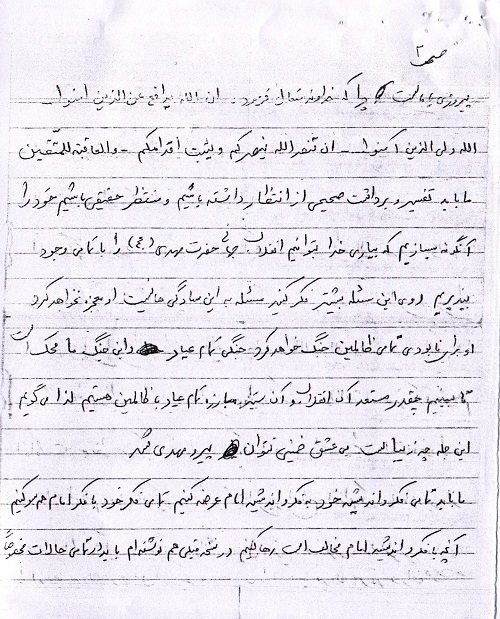 صفحه ۲
پیروزی با ماست چرا که خداوند متعال فرمود. ان الله یدافع عن الذین امنوا
الله ولی الذین آمنوا - ان تنصر الله ینصرکم و یثبت اقدامکم - والعاقبة للمتقین
ما باید تفسیر و برداشت صحیحی از انتظار داشته باشیم و منتظر حقیقی باشیم خود را
آنگونه بسازیم که بیاری خدا بتوانیم انقلاب جهانی حضرت مهدی (عج) را با تمامی وجود
بپذیریم روی این مسئله بیشتر فکر کنید مسئله به این سادگی ها نیست او معجزه نخواهد کرد
او برای نابودی تمامی ظالمین جنگ خواهد کرد جنگی تمام عیار و این جنگ ما محک است
تا ببینیم چقدر مستعد آن انقلاب و آن ستیز و مبارزه تمام عیار با ظالمین هستیم لذا می گویم
این جمله چه زیباست بی عشق خمینی نتوان پیرو مهدی شد
ما باید تمامی فکر و اندیشه خود به فکر و اندیشه امام عرضه کنیم تمامی فکر خود با فکر امام همسو کنیم
آنچه با فکر و اندیشه امام مخالف است رها کنیم در نسخه قبلی هم نوشته ام باید در تمامی حالات مخصوصاً